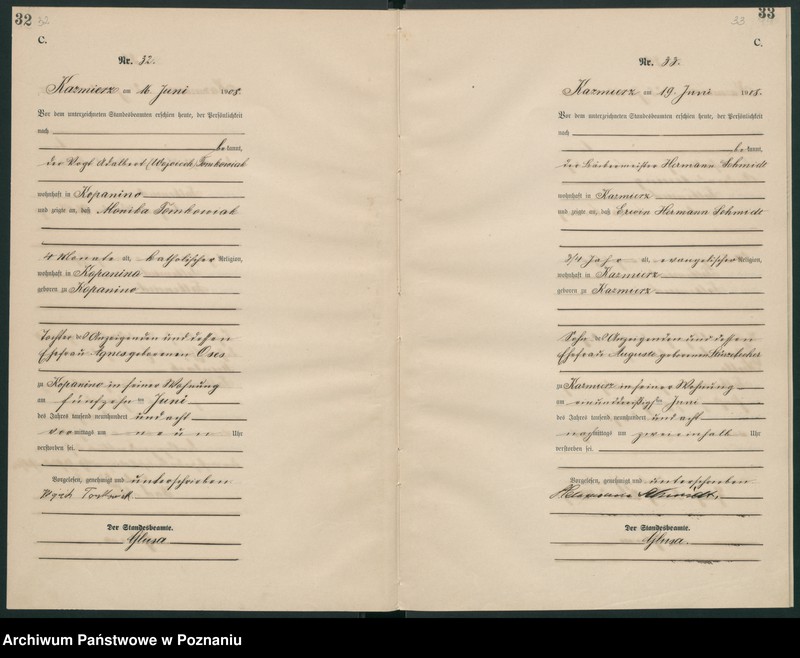 32 32
C.
Nr. 32.
Kazmierz am 16. Juni 1908.
Vor dem unterzeichneten Standesbeamten erschien heute, der Persönlichkeit
nach
bekannt,
der Vogt Adalbert (Wojciech) Tomkowiak
wohnhaft in Kopanino
und zeigte an, daß Monika Tomkowiak
4 Monate alt, katholischer Religion,
wohnhaft in Kopanino
geboren zu Kopanino
Tochter des Anzeigenden und dessen
Ehefrau Agnes geborenen Oses
zu Kopanino in seiner Wohnung
am fünfzehn ten Juni
des Jahres tausend neunhundert und acht
vormittags um neun Uhr
verstorben sei.
Vorgelesen, genehmigt und unterschrieben
Der Standesbeamte.
Glusa
33 33
C.
Nr. 33.
Kazmierz am 19. Juni 1908.
Vor dem unterzeichneten Standesbeamten erschien heute, der Persönlichkeit
nach
bekannt,
der Hermann Schmidt
wohnhaft in Kazmierz
und zeigte an, daß Erwin Hermann Schmidt
3/4 Jahr alt, evangelischer Religion,
wohnhaft in Kazmierz
geboren zu Kazmierz
Sohn des Anzeigenden und dessen
Ehefrau Auguste geborenen
zu Kazmierz in seiner Wohnung
am ten Juni
des Jahres tausend neunhundert und acht
nachmittags um zweieinhalb Uhr
verstorben sei.
Vorgelesen, genehmigt und unterschrieben
Hermann Schmidt.
Der Standesbeamte.
Glusa.
Archiwum Państwowe w Poznaniu